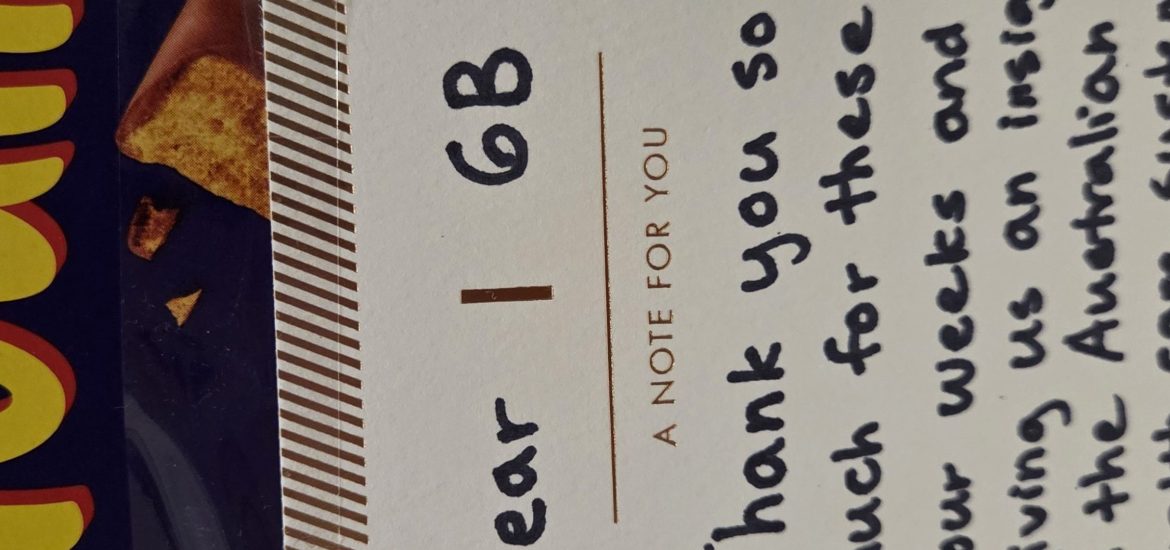 ear 6B
A NOTE FOR YOU
Thank you so
uch for these
our weeks and
iving us an insig
the Australian